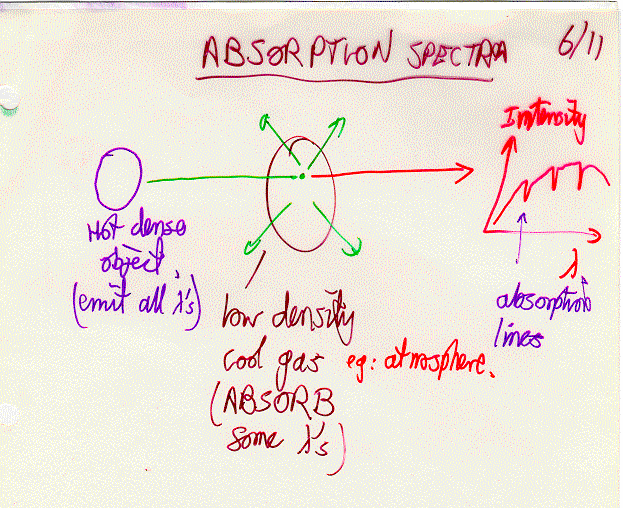 ABSORPTION SPECTRA
6/11
Intensity
Hot dense
object,
(emit all λ's)
low density
cool gas eg: atmosphere.
(ABSORB
some λ's)
λ
absorption
lines